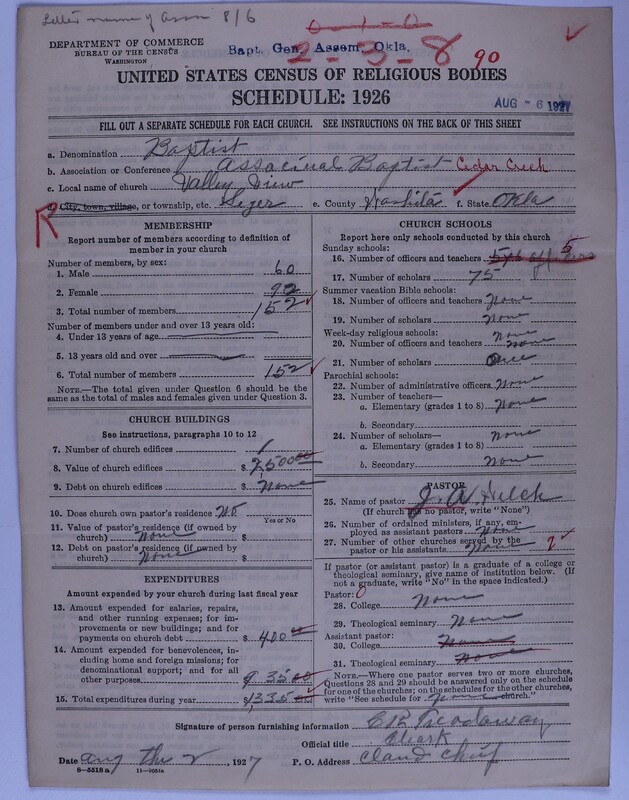 Letter name of Assn 8/6
0-1-0
DEPARTMENT OF COMMERCE
BUREAU OF THE CENSUS
WASHINGTON
Bapt. Gen. Assem. Okla.
2-3-8 90
UNITED STATES CENSUS OF RELIGIOUS BODIES
SCHEDULE: 1926
AUG -6 1927
FILL OUT A SEPARATE SCHEDULE FOR EACH CHURCH. SEE INSTRUCTIONS ON THE BACK OF THIS SHEET
a. Denomination Baptist
b. Association or Conference Baptist Cedar Creek
c. Local name of church Valley View
d. City, town, village, or township, etc. e. County Washita f. State Okla
R
MEMBERSHIP
Report number of members according to definition of member in your church
Number of members, by sex:
1. Male 60
2. Female 92
3. Total number of members 152
Number of members under and over 13 years old:
4. Under 13 years of age
5. 13 years old and over
6. Total number of members 152
NOTE.—The total given under Question 6 should be the
same as the total of males and females given under Question 3.
CHURCH BUILDINGS
See instructions, paragraphs 10 to 12
7. Number of church edifices 1
8. Value of church edifices $ 2,500 00
9. Debt on church edifices $ None
10. Does church own pastor's residence No
Yes or No
11. Value of pastor's residence (if owned by
church) None $
12. Debt on pastor's residence (if owned by
church) None $
EXPENDITURES
Amount expended by your church during last fiscal year
13. Amount expended for salaries, repairs,
and other running expenses; for im-
provements or new buildings; and for
payments on church debt $ 400 00
14. Amount expended for benevolences, in-
cluding home and foreign missions; for
denominational support; and for all
other purposes
15. Total expenditures during year
CHURCH SCHOOLS
Report here only schools conducted by this church
Sunday schools:
16. Number of officers and teachers 5
17. Number of scholars 75
Summer vacation Bible schools:
18. Number of officers and teachers None
19. Number of scholars None
Week-day religious schools:
None
20. Number of officers and teachers None
21. Number of scholars
Parochial schools:
22. Number of administrative officers None
23. Number of teachers—
a. Elementary (grades 1 to 8) None
b. Secondary
24. Number of scholars— None
a. Elementary (grades 1 to 8)
b. Secondary None
PASTOR
25. Name of pastor J. A.
(If church has no pastor, write "None")
26. Number of ordained ministers, if any, em-
ployed as assistant pastors None
27. Number of other churches served by the
pastor or his assistants None
If pastor (or assistant pastor) is a graduate of a college or
theological seminary, give name of institution below. (If
not a graduate, write "No" in the space indicated.)
Pastor: 0
28. College None
29. Theological seminary None
Assistant pastor:
30. College None
31. Theological seminary None
NOTE.—Where one pastor serves two or more churches,
Questions 28 and 29 should be answered only on the schedule
for one of the churches; on the schedules for the other churches,
write "See schedule for None church."
Signature of person furnishing information
Official title Clark
Date Aug the 2, 1927 P. O. Address
8-5518 a